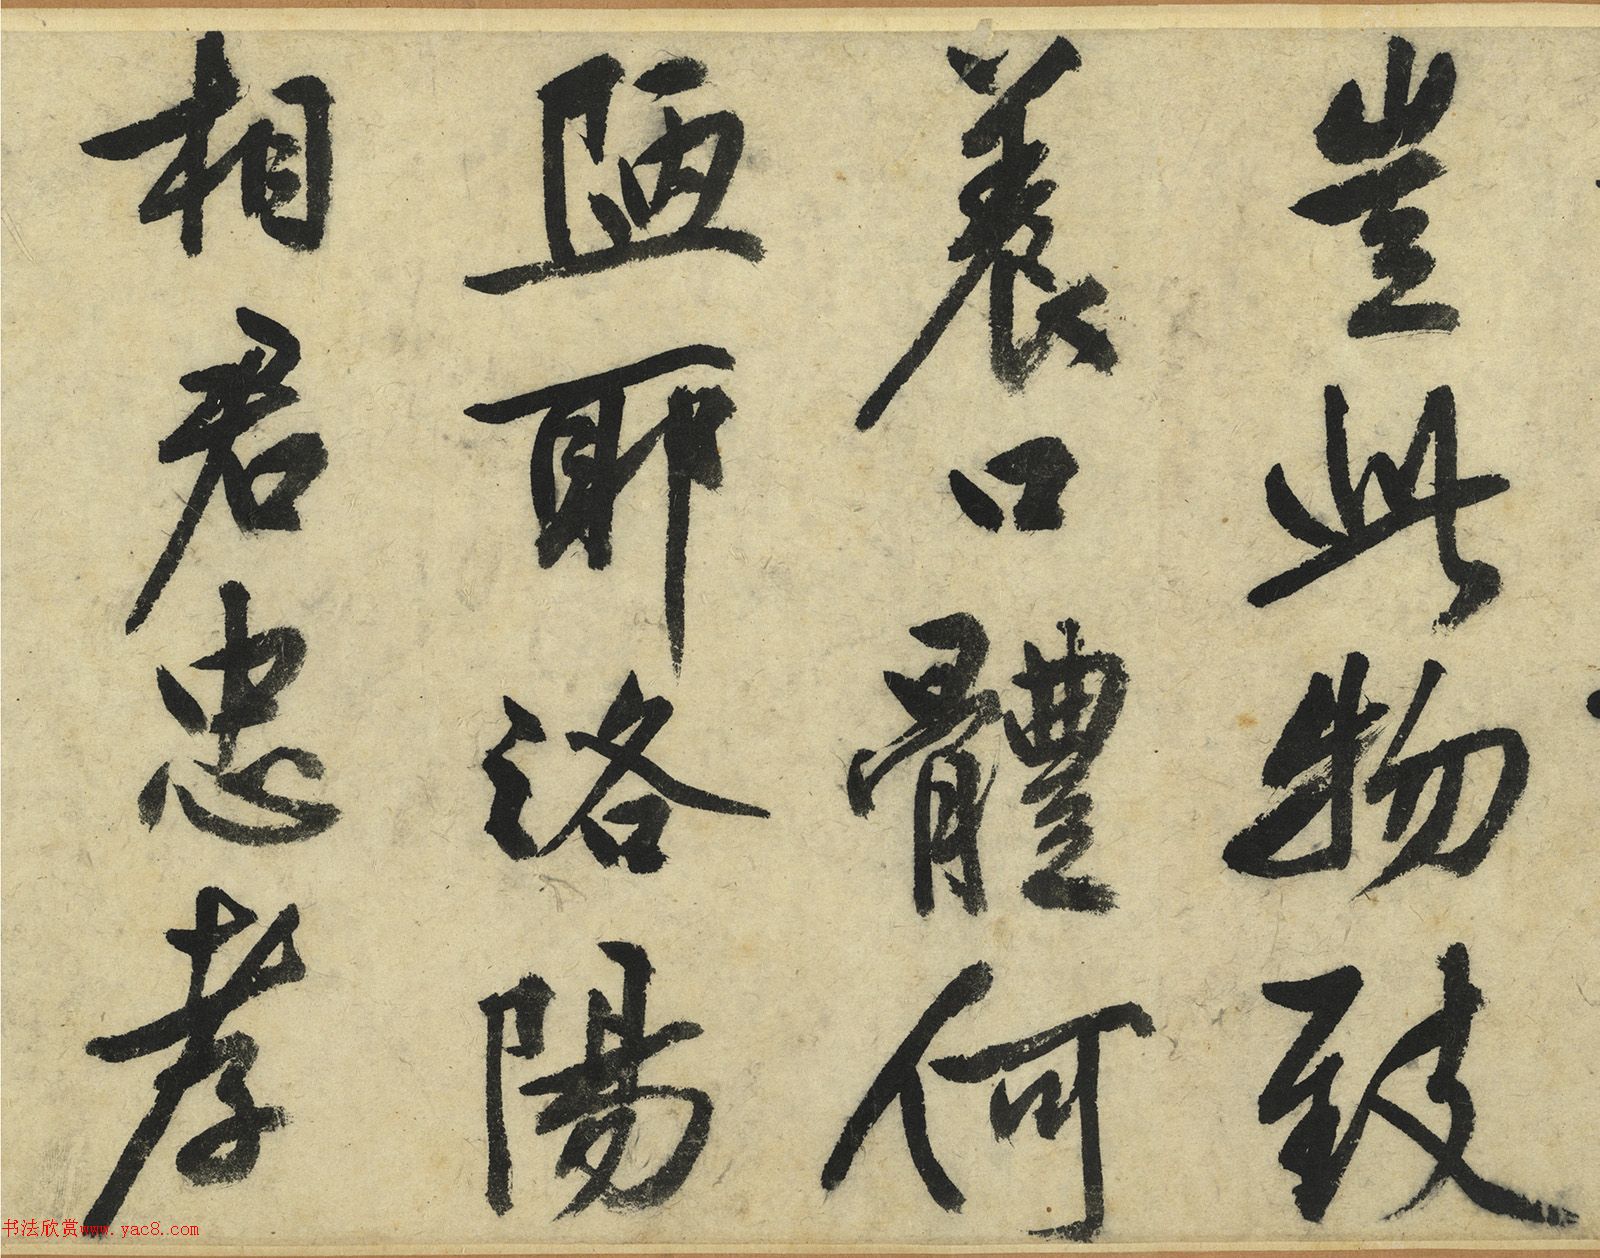 豈此物致
養口體何
陋耶洛陽
相君忠孝
书法欣赏www.yac8.com